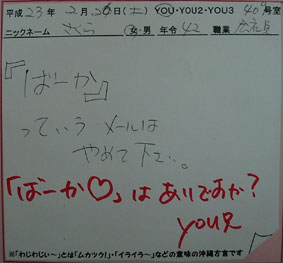 平成23年2月26日(土) YOU・YOU2・YOU3 404号室
ニックネーム さくら 女・男 年令42 職業 会社員
『ばーか』
っていう メールは
やめて下さい。
「ばーか♡」は ありですか?
YOU兄
※「わじわじぃ〜」とは「ムカツク!」・「イライラ〜」などの意味の沖縄方言です